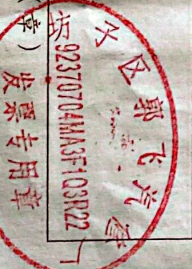 坊子区郭飞汽修厂
92370704MA3F1Q3R22
发票专用章
章）